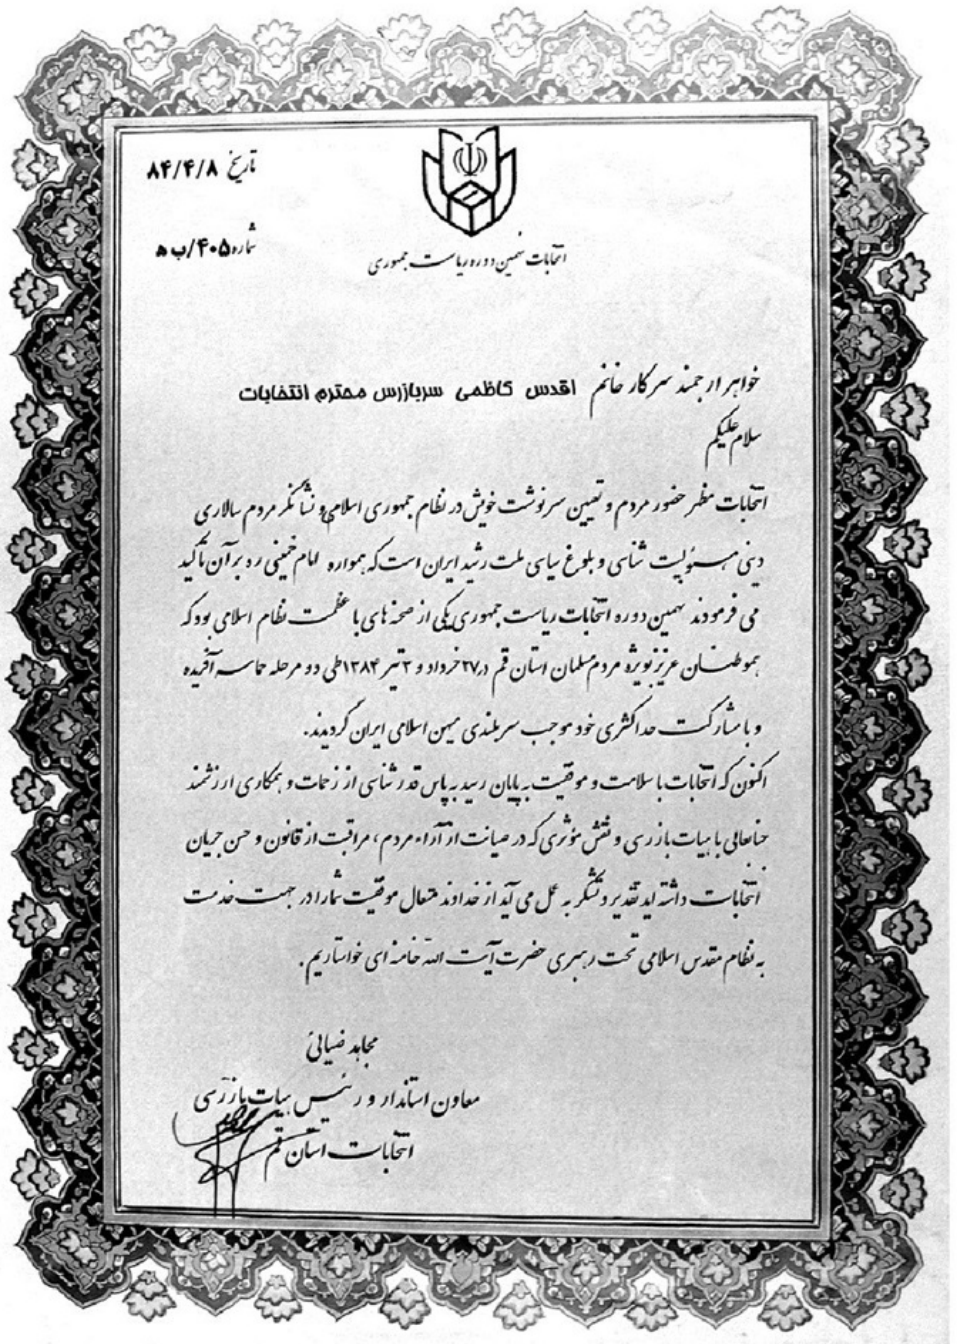 تاریخ ۸۴/۴/۸
شماره ۴۰۵/ب ه
انتخابات نهمین دوره ریاست جمهوری
خواهر ارجمند سرکار خانم اقدس کاظمی سربازرس محترم انتخابات
سلام علیکم
انتخابات مظهر حضور مردم و تعیین سرنوشت خویش در نظام جمهوری اسلامی و نشانگر مردم سالاری
دینی مسئولیت شناسی و بلوغ سیاسی ملت رشید ایران است که همواره امام خمینی ره بر آن تأکید
می فرمودند نهمین دوره انتخابات ریاست جمهوری یکی از صحنه های با عظمت نظام اسلامی بود که
هموطنان عزیز بویژه مردم مسلمان استان قم در ۲۷ خرداد و ۳ تیر ۱۳۸۴ طی دو مرحله حماسه آفریده
و با مشارکت حداکثری خود موجب سربلندی میهن اسلامی ایران گردیدند.
اکنون که انتخابات با سلامت و موفقیت به پایان رسید به پاس قدرشناسی از زحمات و همکاری ارزشمند
جنابعالی با هیات بازرسی و نقش مؤثری که در صیانت از آراء مردم، مراقبت از قانون و حسن جریان
انتخابات داشته اید تقدیر و تشکر به عمل می آید از خداوند متعال موفقیت شما را در جهت خدمت
به نظام مقدس اسلامی تحت رهبری حضرت آیت الله خامنه ای خواستاریم.
مجاهد ضیائی
معاون استاندار و رئیس هیات بازرسی
انتخابات استان قم